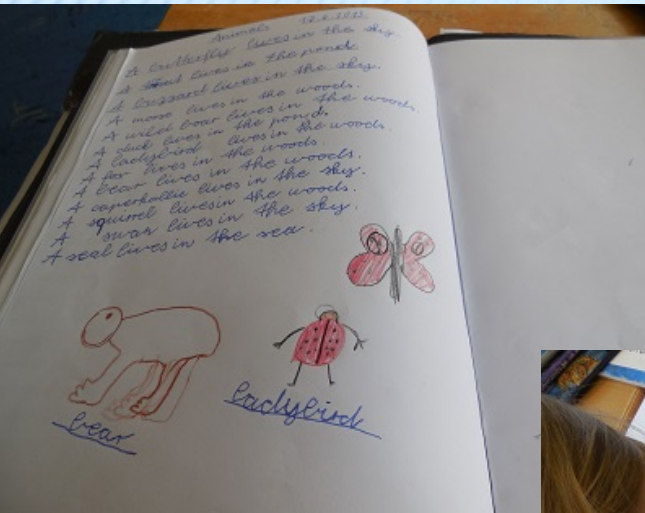 Animals
A butterfly lives in the sky.
A lives in the pond.
A buzzard lives in the sky.
A moose lives in the woods.
A wild boar lives in the woods.
A duck lives in the pond.
A ladybird lives in the woods.
A fox lives in the woods.
A bear lives in the woods.
A caperkallie lives in the sky.
A squirrel livesin the woods.
A swan lives in the sky.
A seal lives in the sea.
bear
ladybird